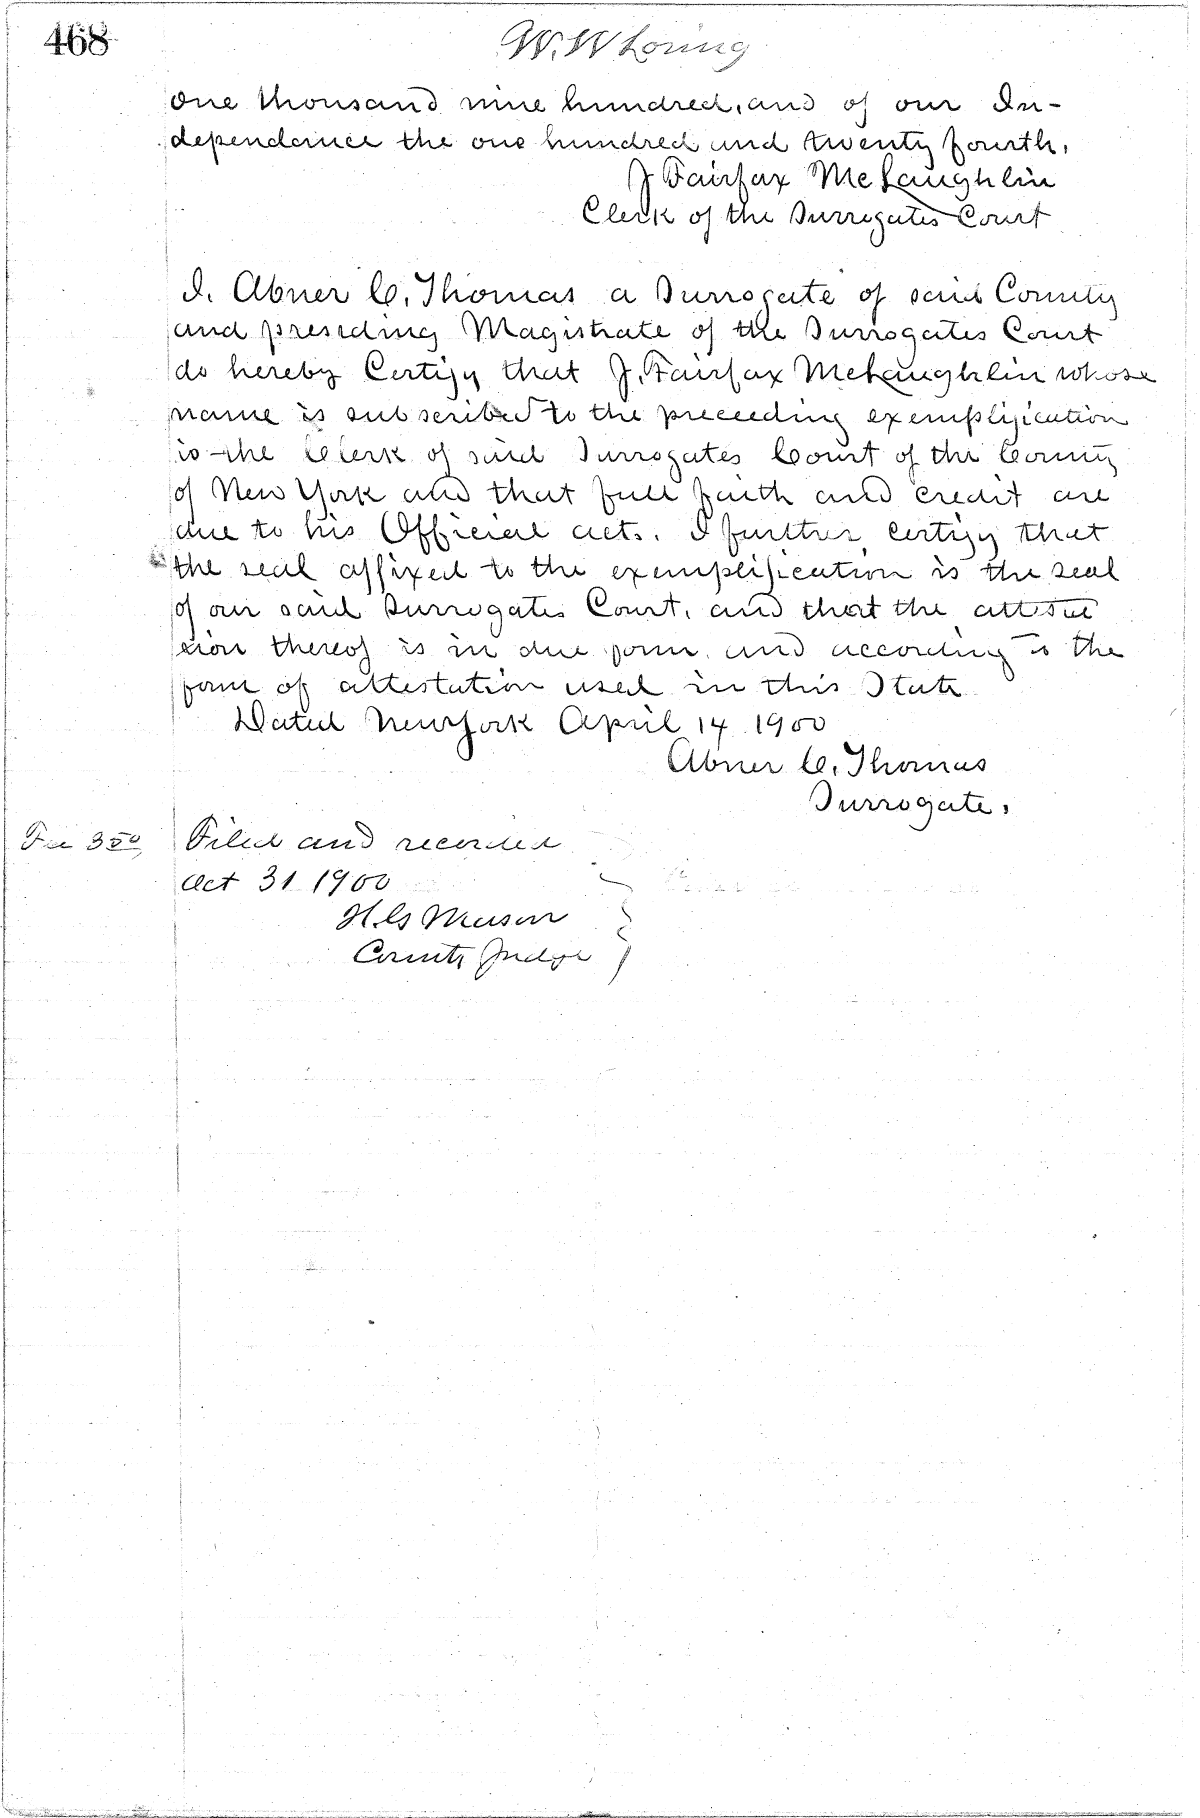 468
W. W Loring
One thousand nine hundred, and of our In-
dependance the one hundred and twenty fourth.
J Fairfax McLaughlin
Clerk of the Surrogates Court
I. Abner C. Thomas a Surrogate of said County
and presiding Magistrate of the Surrogates Court
do hereby Certify that J. Fairfax McLaughlin whose
name is subscribed to the preceeding exemplification
is the Clerk of said Surrogates Court of the County
of New York and that full faith and credit are
due to his Official acts. I further certify that
the seal affixed to the exemplification is the seal
of our said Surrogates Court, and that the attesta
tion thereof is in due form and according to the
form of attestation used in this State
Dated New York April 14 1900
Abner C. Thomas
Surrogate.
Fee 3 50 Filed and recorded
Oct 31 1900
Mason
County Judge